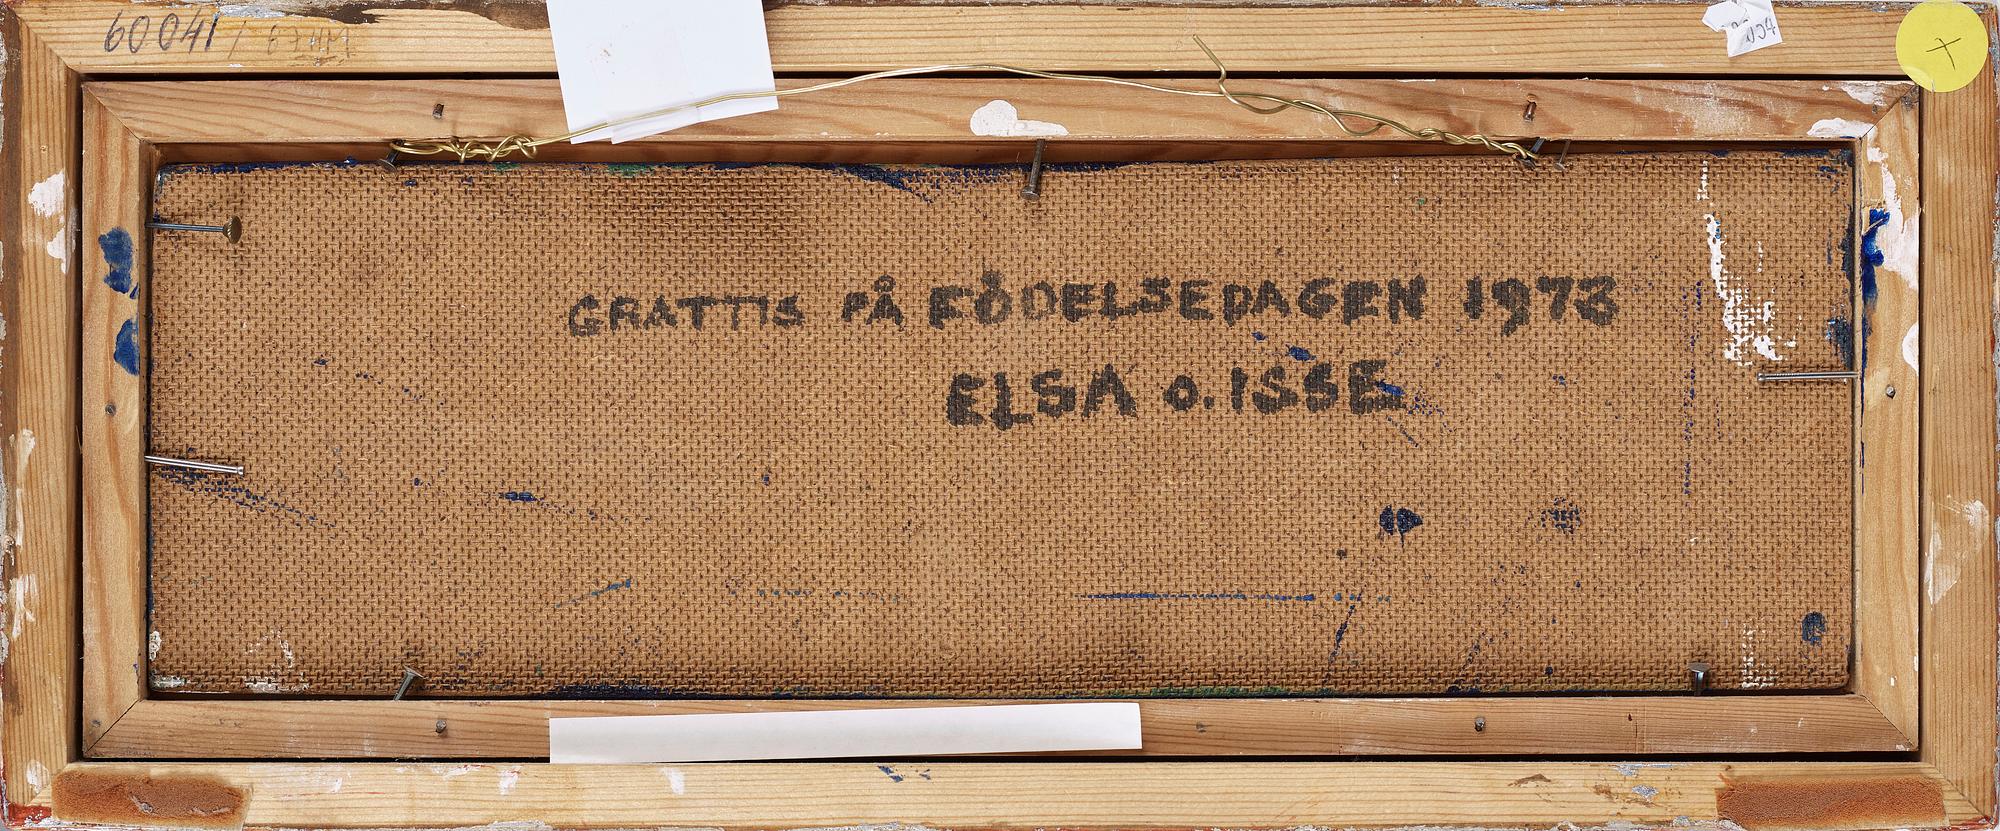 60041 /
GRATTIS PÅ FÖDELSEDAGEN 1973
ELSA O. ISSE